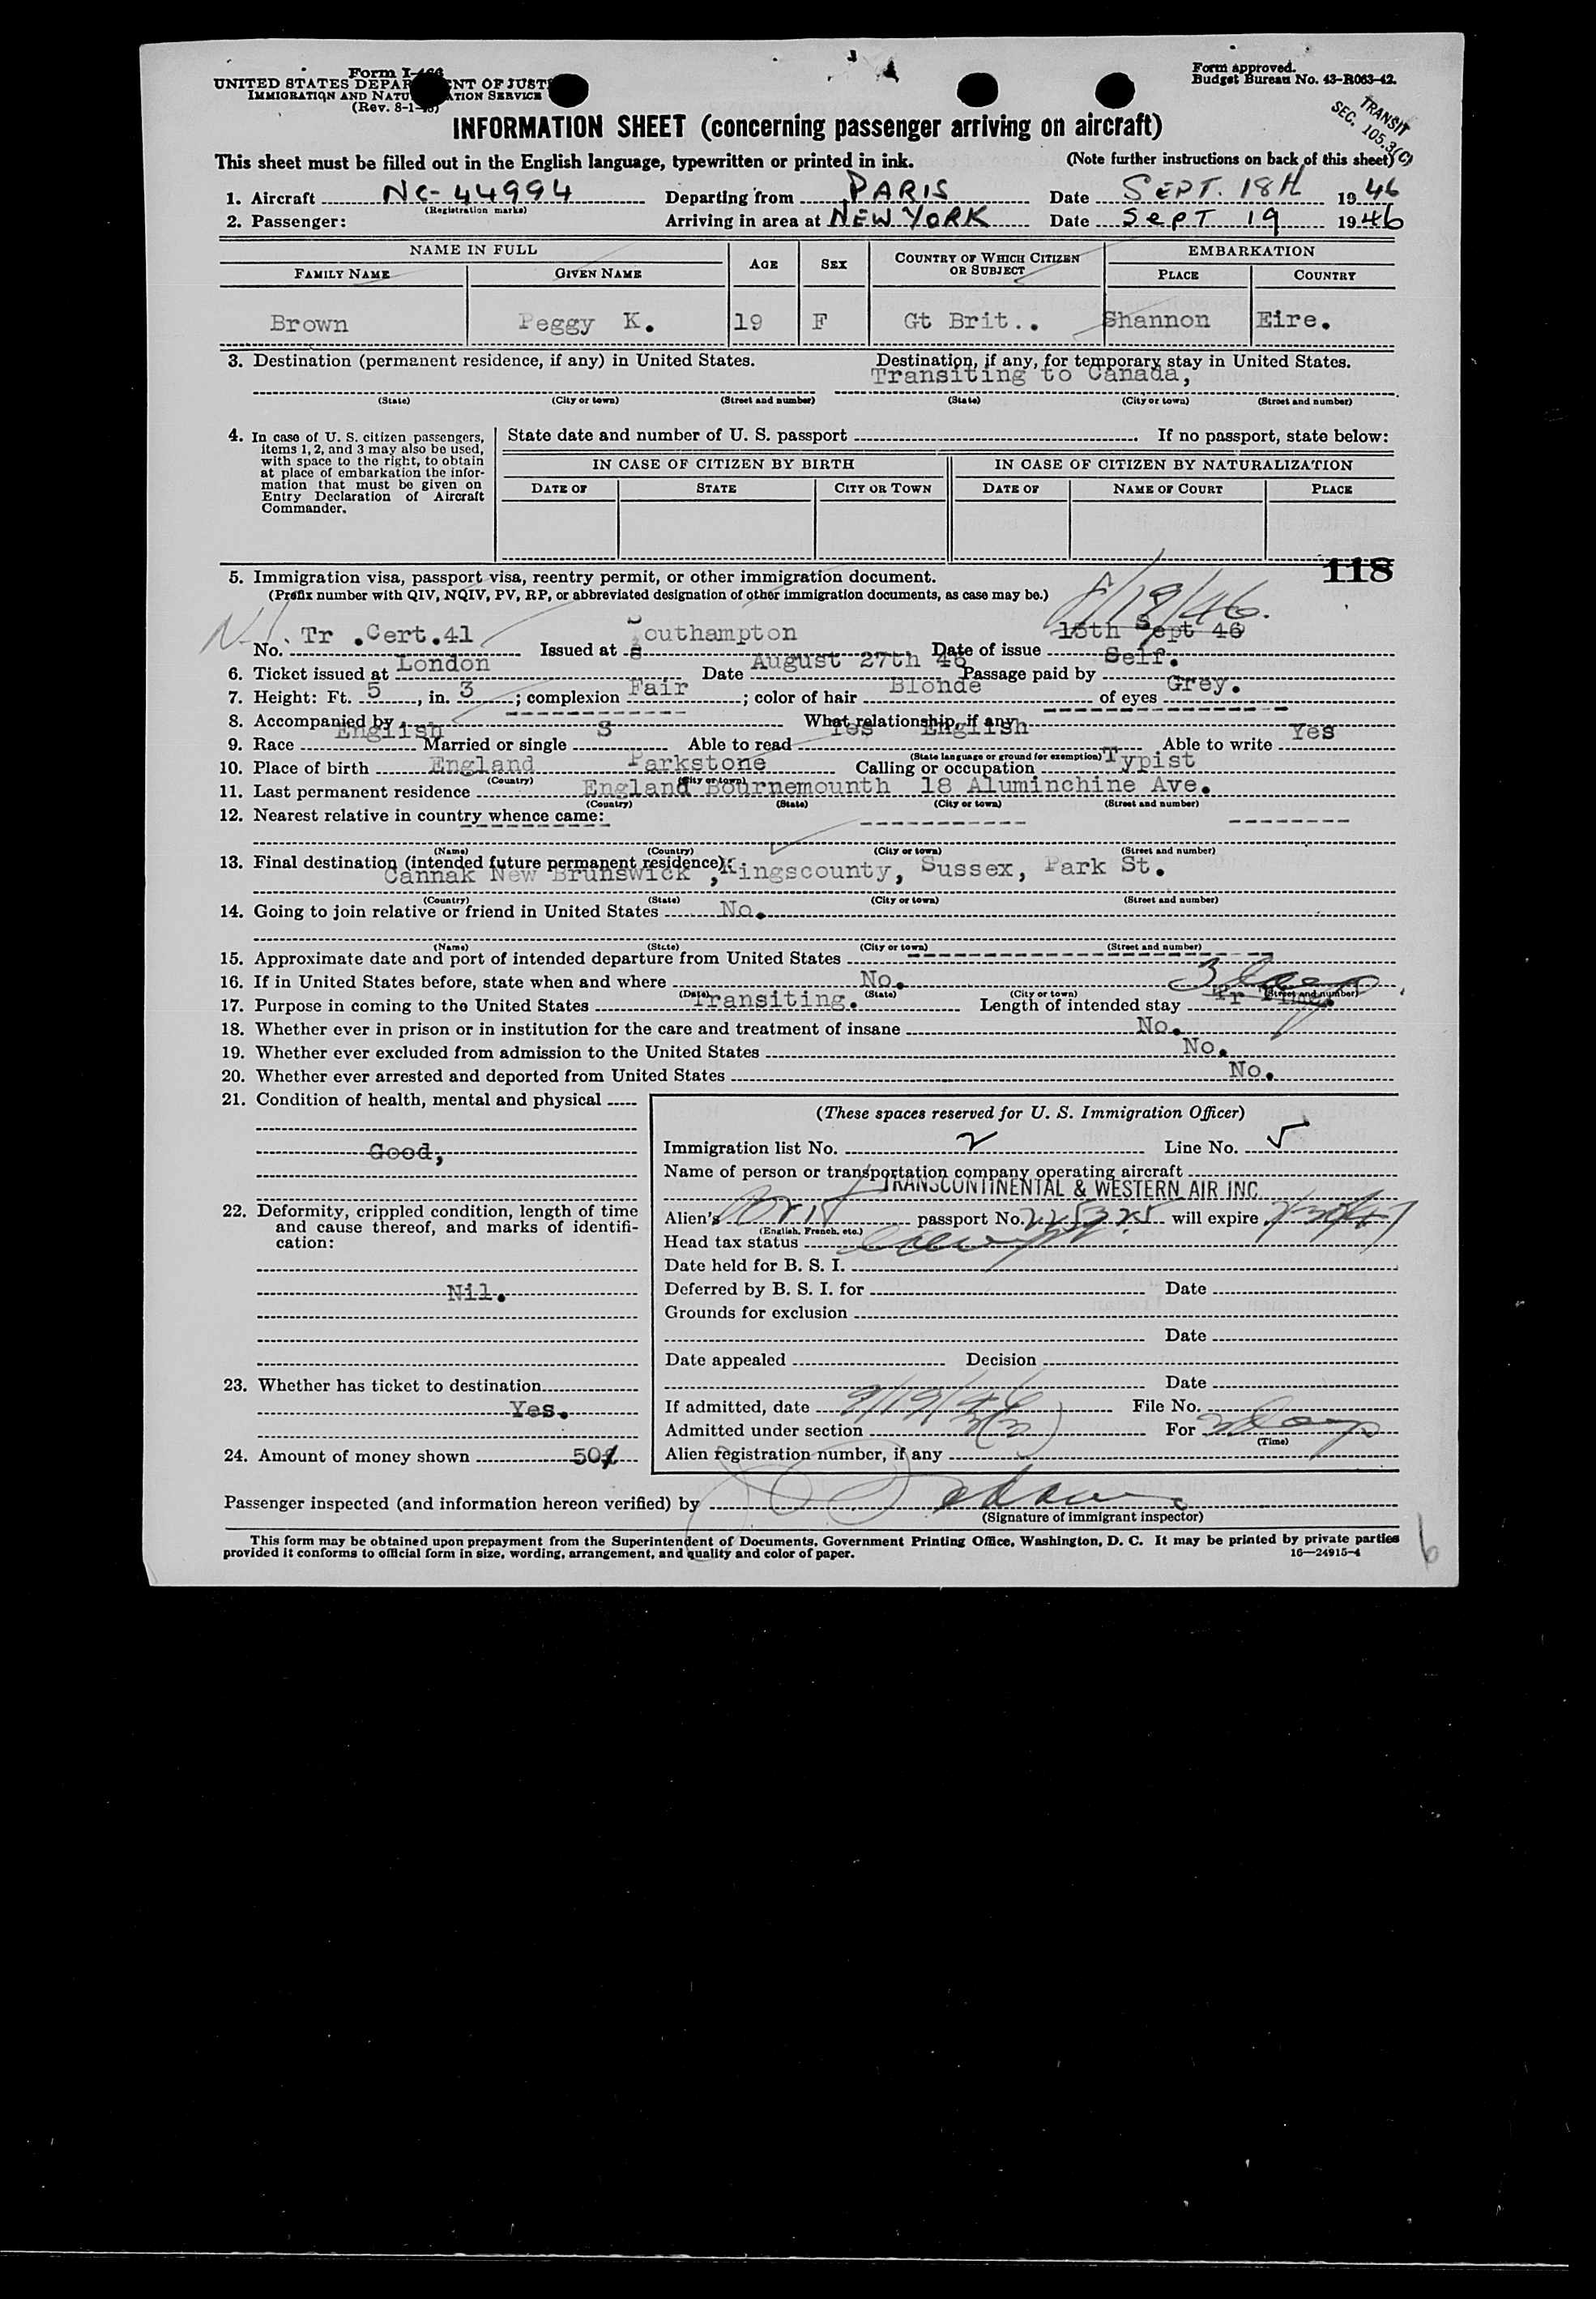 Form I-466
UNITED STATES DEPARTMENT OF JUSTICE
IMMIGRATION AND NATURALIZATION SERVICE
(Rev. 8-1-
Form approved.
Budget Bureau No. 43-R063-42.
TRANSIT
SEC. 105.3(C)
INFORMATION SHEET (concerning passenger arriving on aircraft)
This sheet must be filled out in the English language, typewritten or printed in ink. (Note further instructions on back of this sheet)
1. Aircraft NC-44994 Departing from PARIS Date SEPT. 18th 1946
(Registration marks)
2. Passenger: Arriving in area at NEW YORK Date SEPT 19 1946
NAME IN FULL AGE SEX COUNTRY OF WHICH CITIZEN OR SUBJECT EMBARKATION
FAMILY NAME GIVEN NAME PLACE COUNTRY
Brown Peggy K. 19 F Gt Brit.. Shannon Eire.
3. Destination (permanent residence, if any) in United States. Destination, if any, for temporary stay in United States.
Transiting to Canada,
(State) (City or town) (Street and number) (State) (City or town) (Street and number)
4. In case of U. S. citizen passengers, items 1, 2, and 3 may also be used, with space to the right, to obtain at place of embarkation the information that must be given on Entry Declaration of Aircraft Commander.
State date and number of U. S. passport . If no passport, state below:
IN CASE OF CITIZEN BY BIRTH IN CASE OF CITIZEN BY NATURALIZATION
DATE OF STATE CITY OR TOWN DATE OF NAME OF COURT PLACE
118
5. Immigration visa, passport visa, reentry permit, or other immigration document.
(Prefix number with QIV, NQIV, PV, RP, or abbreviated designation of other immigration documents, as case may be.)
8/18/46.
No. Tr .Cert.41 Issued at Southampton Date of issue 15th Sept 46
6. Ticket issued at London Date August 27th 46 Passage paid by Self.
7. Height: Ft. 5, in. 3; complexion Fair; color of hair Blonde of eyes Grey.
8. Accompanied by What relationship, if any
9. Race English Married or single S Able to read Yes English Able to write Yes
(State language or ground for exemption)
10. Place of birth England Parkstone Calling or occupation Typist
(Country) (City or town)
11. Last permanent residence England Bournemounth 18 Aluminchine Ave.
(Country) (State) (City or town) (Street and number)
12. Nearest relative in country whence came:
(Name) (Country) (City or town) (Street and number)
13. Final destination (intended future permanent residence):
Cannak New Brunswick ,Kingscounty, Sussex, Park St.
(Country) (State) (City or town) (Street and number)
14. Going to join relative or friend in United States No.
(Name) (State) (City or town) (Street and number)
15. Approximate date and port of intended departure from United States
16. If in United States before, state when and where No. 3 days
(Date) (State) (City or town) (Street and number)
17. Purpose in coming to the United States Transiting. Length of intended stay Tr Time.
18. Whether ever in prison or in institution for the care and treatment of insane No.
19. Whether ever excluded from admission to the United States No.
20. Whether ever arrested and deported from United States No.
21. Condition of health, mental and physical
Good,
22. Deformity, crippled condition, length of time and cause thereof, and marks of identification:
Nil.
23. Whether has ticket to destination
Yes.
24. Amount of money shown 50
(These spaces reserved for U. S. Immigration Officer)
Immigration list No. 2 Line No. 5
Name of person or transportation company operating aircraft
TRANSCONTINENTAL & WESTERN AIR INC
Alien's Brit passport No. 225325 will expire
(English, French, etc.)
Head tax status exempt
Date held for B. S. I.
Deferred by B. S. I. for Date
Grounds for exclusion
Date
Date appealed Decision
Date
If admitted, date 9/19/46 File No.
Admitted under section 3(3) For 3 days
(Time)
Alien registration number, if any
Passenger inspected (and information hereon verified) by
(Signature of immigrant inspector)
This form may be obtained upon prepayment from the Superintendent of Documents, Government Printing Office, Washington, D. C. It may be printed by private parties
provided it conforms to official form in size, wording, arrangement, and quality and color of paper. 16—24915-4
6